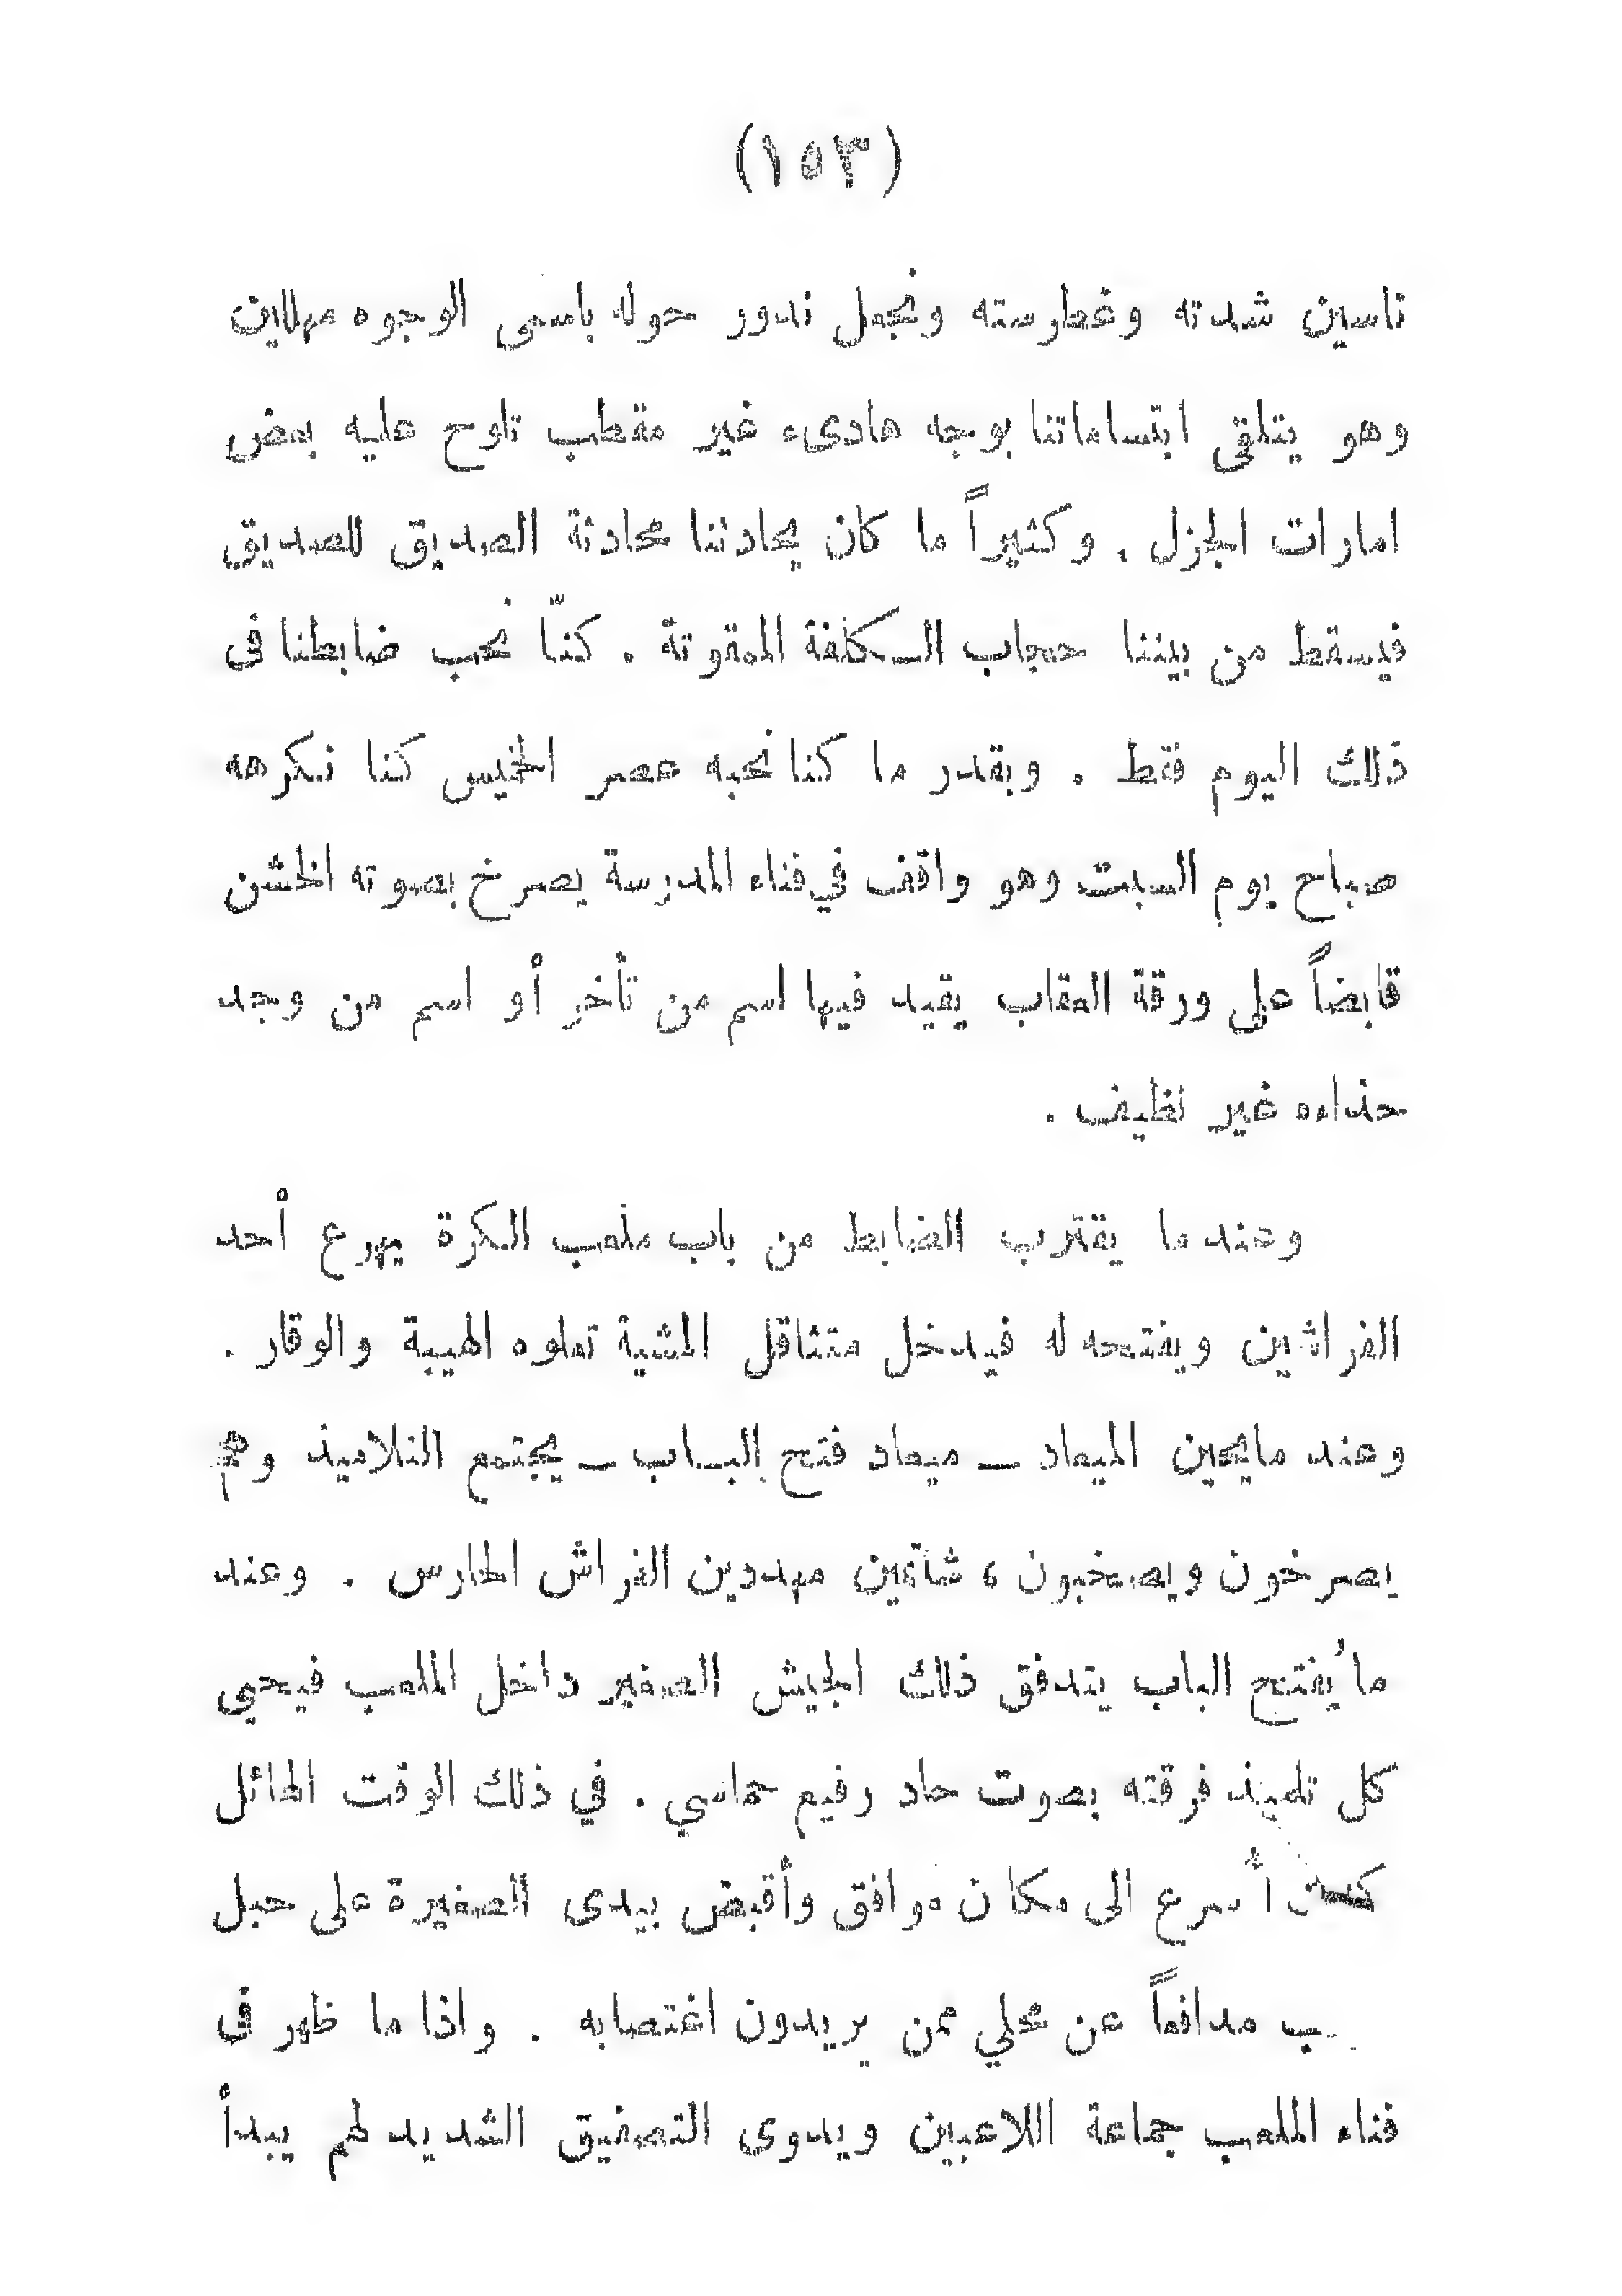 (١٥٣)
ناسين شدته وغطرسته ونجعل ندور حوله باسمى الوجوه مهللين
وهو يتلقى ابتساماتنا بوجه هادىء غير مقطب تلوح عليه بعض
امارات الجزل . وكثيراً ما كان يحادثنا محادثة الصديق للصديق
فيسقط من بيننا حجاب الكلفة الممقوتة . كنّا نحب ضابطنا فى
ذلك اليوم فقط . وبقدر ما كنا نحبه عصر الخميس كنا نكرهه
صباح يوم السبت وهو واقف في فناء المدرسة يصرخ بصوته الخشن
قابضاً على ورقة العقاب يقيد فيها اسم من تأخر أو اسم من وجد
حذاءه غير نظيف .
وعند ما يقترب الضابط من باب ملعب الكرة يهرع أحد
الفراشين ويفتحه له فيدخل متثاقل المشية تعلوه الهيبة والوقار .
وعند مايحين الميعاد — ميعاد فتح الباب — يجتمع التلاميذ وهم
يصرخون ويصخبون ، شاتمين مهددين الفراش الحارس . وعند
ما يُفتح الباب يتدفق ذلك الجيش الصغير داخل الملعب فيحيي
كل تلميذ فرقته بصوت حاد رفيع حماسي . في ذلك الوقت الهائل
كنت أسرع الى مكان موافق وأقبض بيدى الصغيرة على حبل
مدافعاً عن محلي ممن يريدون اغتصابه . واذا ما ظهر فى
فناء الملعب جماعة اللاعبين ويدوى التصفيق الشديد لهم يبدأ